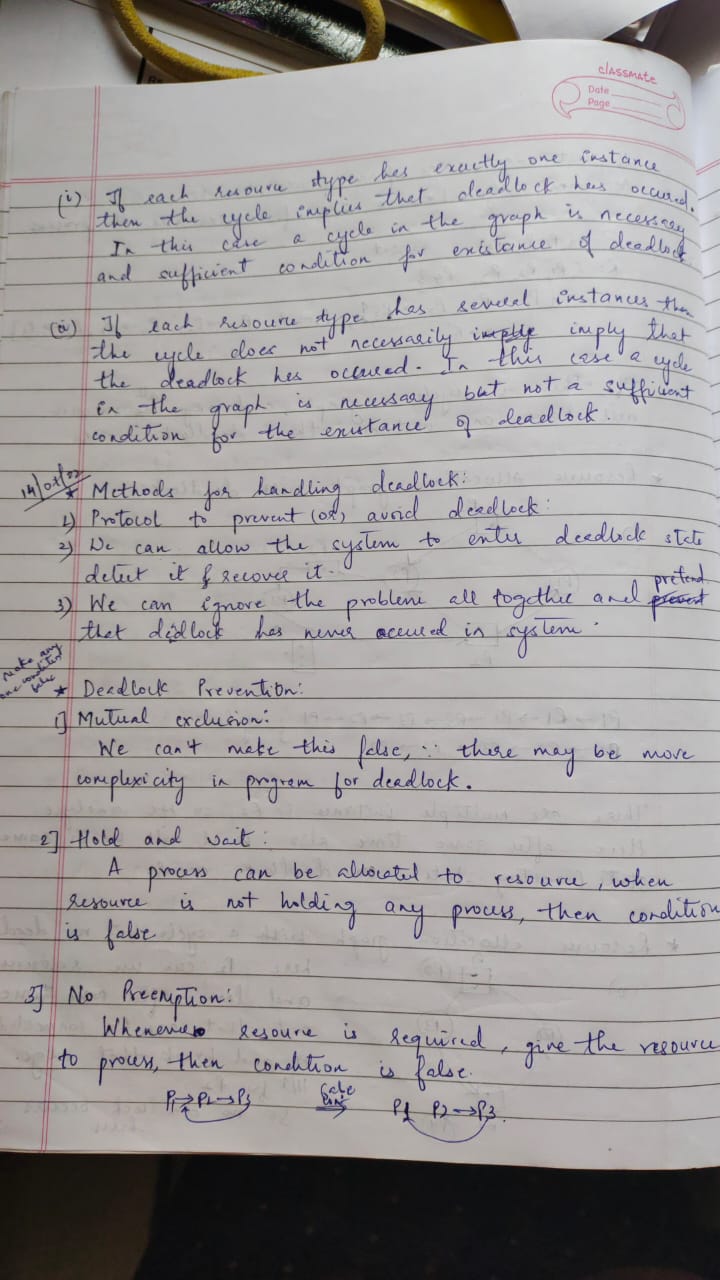 classmate
Date
Page
(i) If each resource type has exactly one instance
then the cycle implies that deadlock has occured.
In this case a cycle in the graph is necessary
and sufficient condition for existance of deadlock
(ii) If each resource type has several instances then
the cycle does not necessarily imply imply that
the deadlock has occured. In this case a cycle
in the graph is necessary but not a sufficient
condition for the existance of deadlock.
★ Methods for handling deadlock:
1) Protocol to prevent (or) avoid deadlock:
2) We can allow the system to enter deadlock state
detect it & recover it.
3) We can ignore the problem all together and prevent pretend
that dedlock has never occured in system.
Make any
one condition
false
★ Deadlock Prevention:
1] Mutual exclusion:
We can't make this false, ∵ there may be more
complexicity in program for deadlock.
2] Hold and wait:
A process can be allocated to resource, when
resource is not holding any process, then condition
is false
3] No Preemption:
Whenever resource is required, give the resource
to process, then condition is false.
P1→P2→P3 P1 P2→P3.